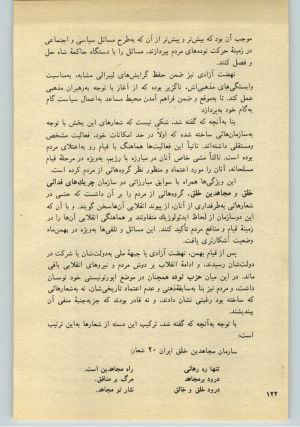 موجب آن بود که بیش‌تر و پیش‌تر از آن که به‌طرح مسائل سیاسی و اجتماعی
در زمینهٔ حرکت توده‌های مردم بپردازند، مسائل را با دستگاه حاکمهٔ شاه حل
و فصل کنند.
نهضت آزادی نیز ضمن حفظ گرایش‌های لیبرالی مشابه، به‌مناسبت
وابستگی‌های مذهبی‌اش، ناگزیر بوده که از آغاز با توجه به‌رهبران مذهبی
عمل کند. تا به‌موقع و ضمن فراهم آمدن محیط مساعد به‌اعمال سیاست گام
به‌گام خود بپردازد
بنا به‌آنچه که گفته شد، شکی نیست که شعارهای این بخش با توجه
به‌سازمان‌هائی ساخته شده که اولاً در حد امکانات خود، فعالیت مشخص
داشته‌اند. ثانیاً این فعالیت‌ها هماهنگ با قیام رو به‌اعتلای مردم
بوده است. ثالثاً مشی خاص آنان در مبارزه با رژیم، به‌ویژه در مرحلهٔ قیام
مسلحانه، آنان را مورد اعتماد و منظور نظر گروه‌هائی از مردم کرده است.
این ویژگی‌ها همراه با سوابق مبارزاتی دو سازمان چریک‌های فدائی
خلق و مجاهدین خلق، گروه‌هائی از مردم را بر آن داشت که حتی در
شعارهای به‌طرفداری از آنان، از پیوند انقلابی آن‌ها سخن گویند. و با آن که
این دوسازمان از لحاظ ایدئولوژیک متفاوتند بر هماهنگی انقلابی آن‌ها را در
زمینهٔ قیام و منافع مردم تأکید کنند. این مسائل و تلقی‌ها به‌ویژه در بهمن‌ماه
وضعیت آشکارتری یافت.
پس از قیام بهمن، نهضت آزادی یا جبههٔ ملی به‌دولت‌شان یا شرکت در
دولت‌شان رسیدند، و ادامهٔ انقلاب بر دوش مردم و نیروهای انقلابی باقی
ماند. در این میان حزب توده همچنان در موضع اپورتونیستی خود نوسان
داشت، و مردم نیز بنا به‌سابقهٔ‌ذهنی و عدم اعتماد تاریخی‌شان، نه به‌شعارهائی
که ساخته بود رغبتی نشان دادند، و نه قادر بودند که جز به‌جنبهٔ منفی آن
بیندیشند.
با توجه به‌آنچه که گفته شد، ترکیب این دسته از شعارها به‌این ترتیب
است:
سازمان مجاهدین خلق ایران ۲۰ شعار:
تنها ره رهائی راه مجاهدین است.
درود برمجاهد مرگ بر منافق.
درود خلق و خالق نثار تو مجاهد.
۱۲۲